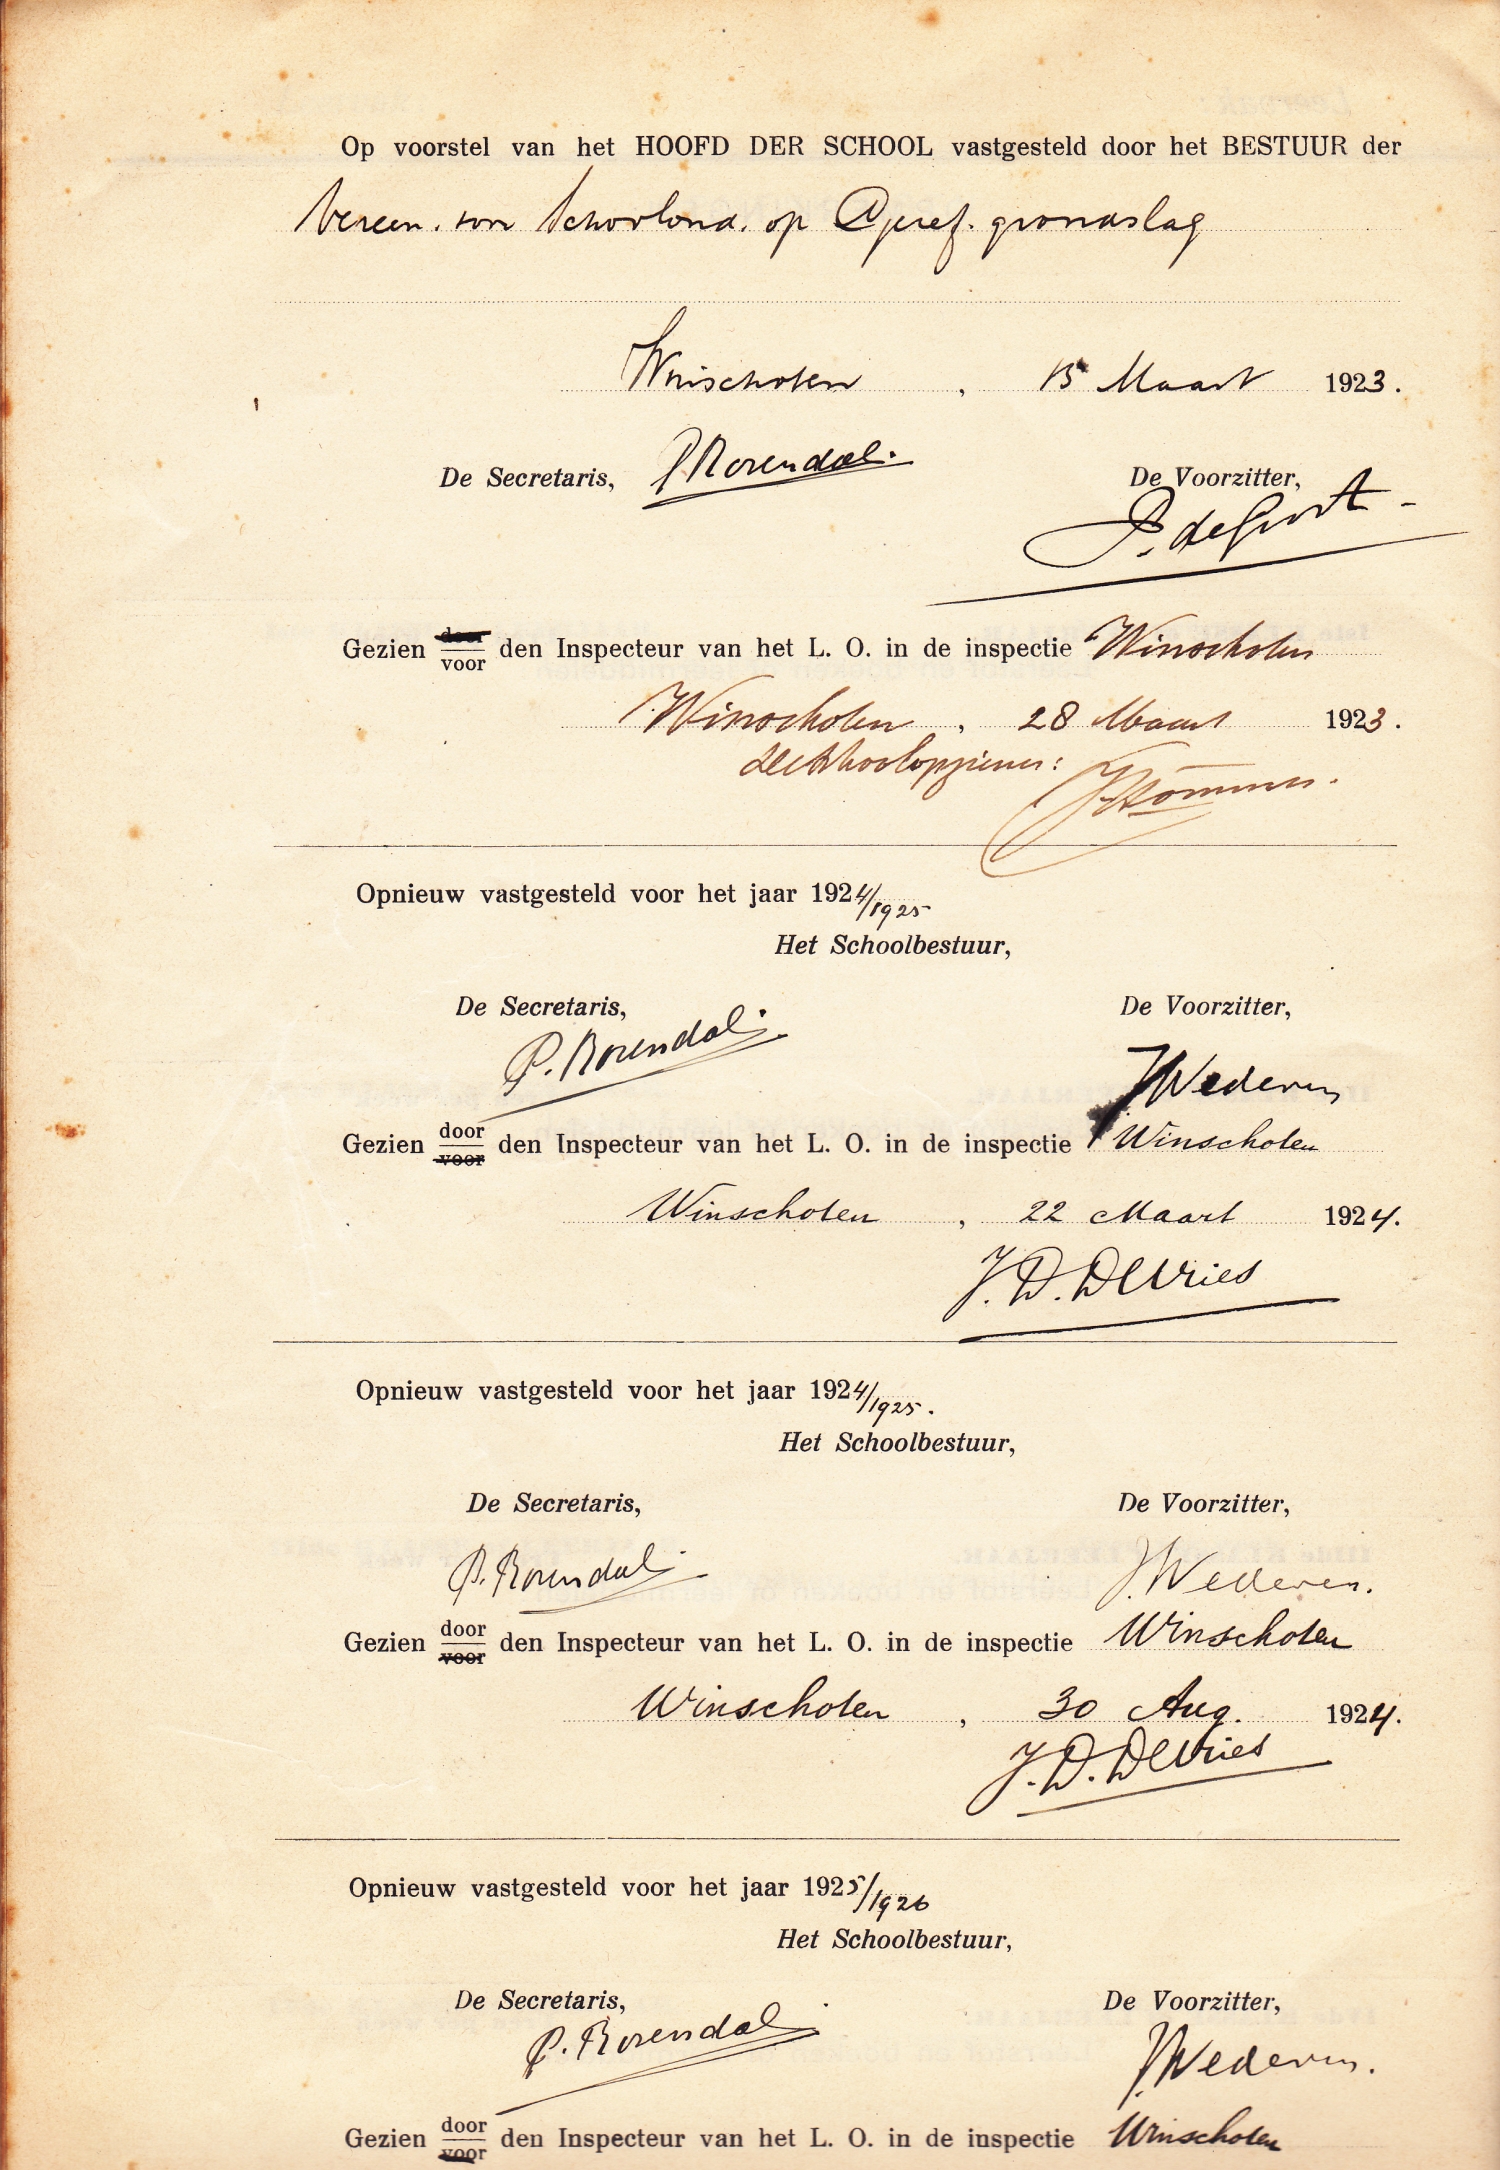 Op voorstel van het HOOFD DER SCHOOL vastgesteld door het BESTUUR der
Vereen. voor Schoolond. op Geref. grondslag
Winschoten, 15 Maart 1923.
De Secretaris, P Rozendal. De Voorzitter,
P. de Groot
Gezien door/voor den Inspecteur van het L. O. in de inspectie Winschoten
Winschoten, 28 Maart 1923.
de schoolopziener:
Opnieuw vastgesteld voor het jaar 1924/1925
Het Schoolbestuur,
De Secretaris, De Voorzitter,
P. Rozendal. J Wederen
Gezien door/voor den Inspecteur van het L. O. in de inspectie Winschoten
Winschoten, 22 Maart 1924.
J. D. De Vries
Opnieuw vastgesteld voor het jaar 1924/1925.
Het Schoolbestuur,
De Secretaris, De Voorzitter,
P. Rozendal. J. Wederen.
Gezien door/voor den Inspecteur van het L. O. in de inspectie Winschoten
Winschoten, 30 Aug. 1924.
J. D. De Vries
Opnieuw vastgesteld voor het jaar 1925/1926
Het Schoolbestuur,
De Secretaris, De Voorzitter,
P. Rozendal. J. Wederen.
Gezien door/voor den Inspecteur van het L. O. in de inspectie Winschoten